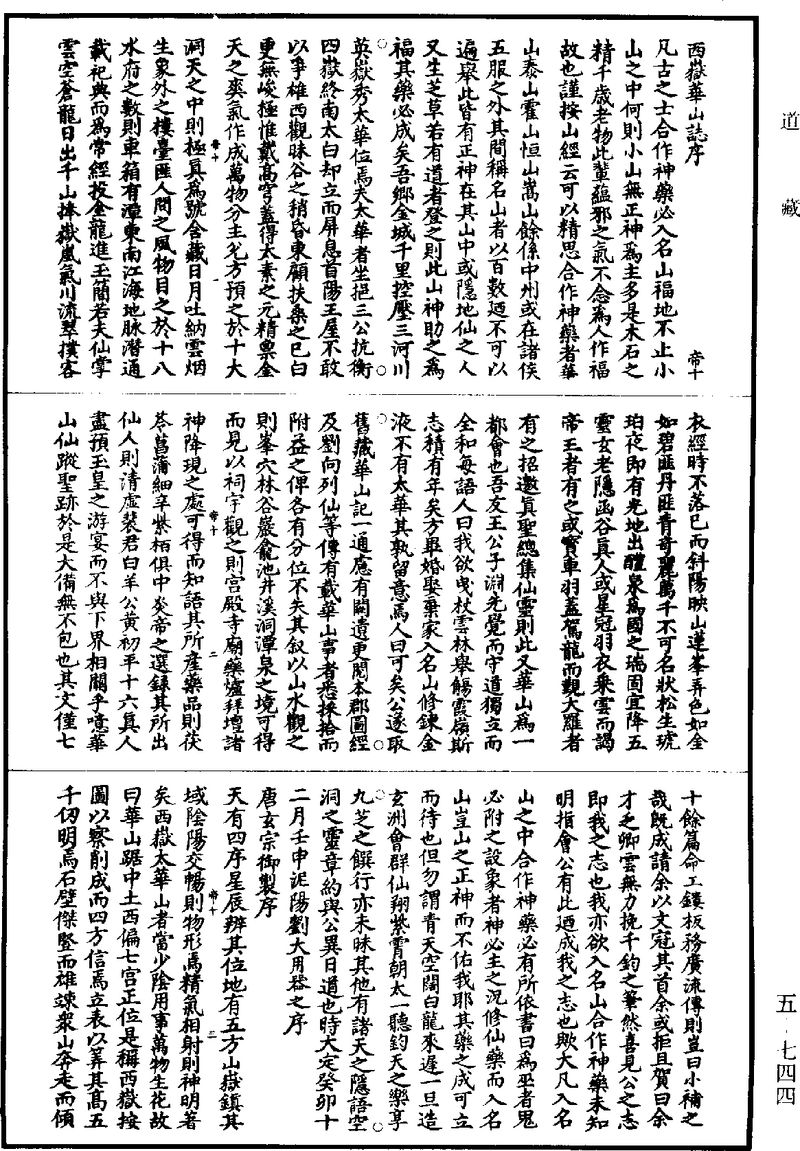 道藏
西嶽華山誌序
帝十
凡古之士合作神藥必入名山福地不止小
山之中何則小山無正神為主多是木石之
精千歲老物此輩蘊邪之氣不念為人作福
故也謹按山經云可以精思合作神藥者華
山泰山霍山恒山嵩山餘係中州或在諸侯
五服之外其間稱名山者以百數迺不可以
遍舉此皆有正神在其山中或隱地仙之人
又生芝草若有道者登之則此山神助之為
福其藥必成矣吾鄉金城千里控壓三河川
英嶽秀太華位焉夫太華者坐挹三公抗衡
四嶽終南太白却立而屏息首陽王屋不敢
以爭雄西觀昧谷之稍昏東顧扶桑之已白
更無峻極惟戴高穹蓋得太素之元精稟金
天之爽氣作成萬物分主兊方預之於十大
洞天之中則極真為號含藏日月吐納雲烟
帝十
一
生象外之樓臺匪人間之風物目之於十八
水府之數則車箱有潭東南江海地脉潛通
載祀典而為常經投金龍進玉簡若夫仙掌
雲空蒼龍日出千山捧嶽嵐氣川流翠撲客
衣經時不落已而斜陽映山蓮峯弄色如金
如碧匪丹匪青奇麗萬千不可名狀松生琥
珀夜即有光地出醴泉為國之瑞固宜降五
靈女老隱函谷真人或星冠羽衣乘雲而謁
帝王者有之或寶車羽蓋駕龍而覲大羅者
有之招邀真聖總集仙靈則此又華山為一
都會也吾友王公子淵先覺而守道獨立而
全和每語人曰我欲曳杖雲林舉觴霞嶺斯
志積有年矣方畢婚娶棄家入名山修鍊金
液不有太華其孰留意焉人曰可矣公遂取
舊藏華山記一通應有闕遺更閱本郡圖經
及劉向列仙等傳有載華山事者悉採拾而
附益之俾各有分位不失其叙以山水觀之
則峯穴林谷巖龕池井溪洞潭泉之境可得
而見以祠宇觀之則宮殿寺廟藥爐拜壇諸
神降現之處可得而知語其所產藥品則茯
帝十
二
苓菖蒲細辛紫栢俱中炎帝之選錄其所出
仙人則清虛裴君白羊公黃初平十六真人
盡預玉皇之游宴而不與下界相關乎噫華
山仙蹤聖跡於是大備無不包也其文僅七
十餘篇命工鏤板務廣流傳則豈曰小補之
哉既成請余以文冠其首余或拒且賀曰余
才乏卿雲無力挽千鈞之筆然喜見公之志
即我之志也我亦欲入名山合作神藥未知
明指會公有此迺成我之志也歟大凡入名
山之中合作神藥必有所依書曰為巫者鬼
必附之設象者神必主之況修仙藥而入名
山豈山之正神而不佑我耶其藥之成可立
而待也但勿謂青天空闊白龍來遲一旦造
玄洲會群仙翔紫霄朝太一聽鈞天之樂享
九芝之饌行亦未昧其他有諸天之隱語空
洞之靈章約與公異日道也時大定癸卯十
二月壬申泥陽劉大用器之序
唐玄宗御製序
天有四序星辰辨其位地有五方山嶽鎮其
帝十
三
域陰陽交暢則物形焉精氣相射則神明著
矣西嶽太華山者當少陰用事萬物生花故
曰華山踞中土西偏七宮正位是稱西嶽按
圖以察削成而四方信焉立表以筭其高五
千仞明焉石壁傑竪而雄竦衆山奔走而傾
五-七四四